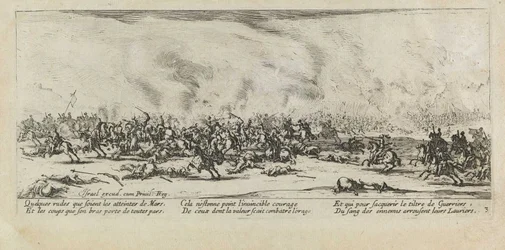 Israel excud. cum Privil. Reg.
Quelques rudes que soient les atteintes de Mars,
Et les coups que son bras porte de toutes pars.
Cela n'estonne point l'invincible courage
De ceux dont la valeur scait combatre l'orage
Et qui pour s'acquerir le tiltre de Guerriers,
Du sang des ennemis arrousent leurs Lauriers.
3